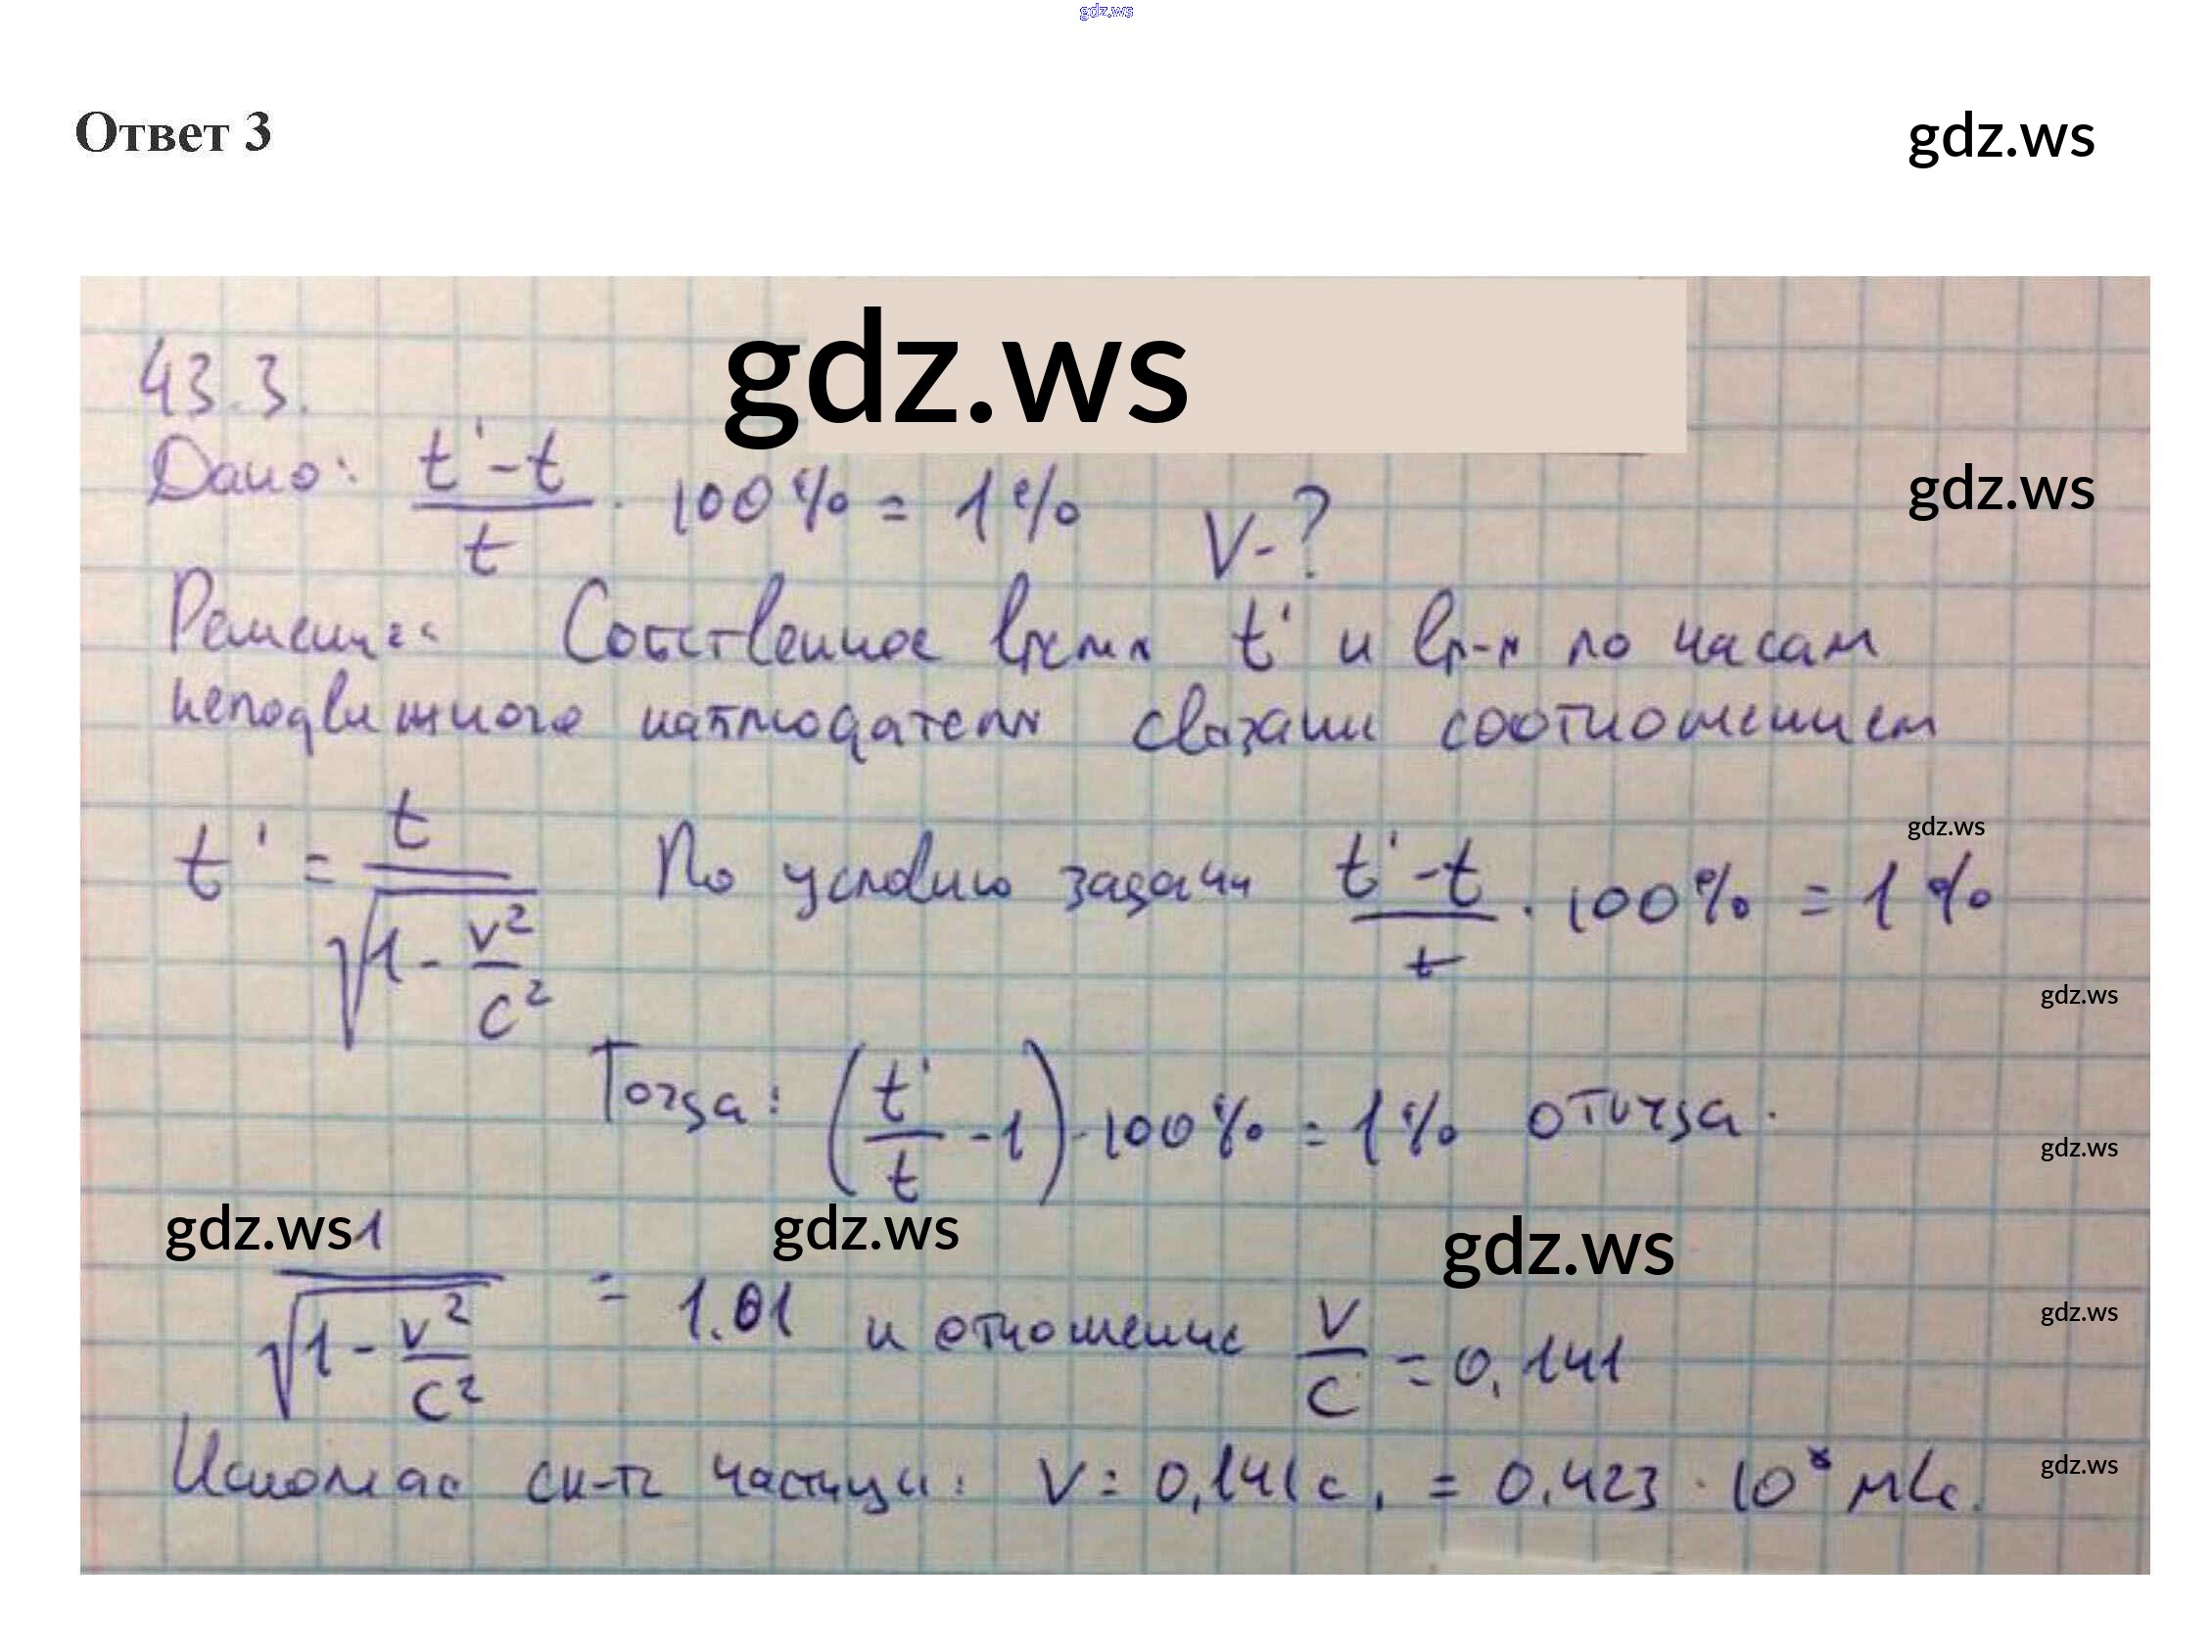 gdz.ws
Ответ 3 gdz.ws
gdz.ws
43.3.
Дано: (t' - t)/t · 100% = 1% V - ?
gdz.ws
Решение: Собственное время t' и вр-я по часам
неподвижного наблюдателя связаны соотношением
gdz.ws
t' = t/√(1 - v²/c²) По условию задачи (t' - t)/t · 100% = 1%
gdz.ws
Тогда: (t'/t - 1) · 100% = 1% откуда:
gdz.ws
gdz.ws gdz.ws gdz.ws
1/√(1 - v²/c²) = 1.01 и отношение v/c = 0,141
gdz.ws
Искомая ск-ть частицы: V = 0,141c, = 0.423 · 10⁸ м/с.
gdz.ws